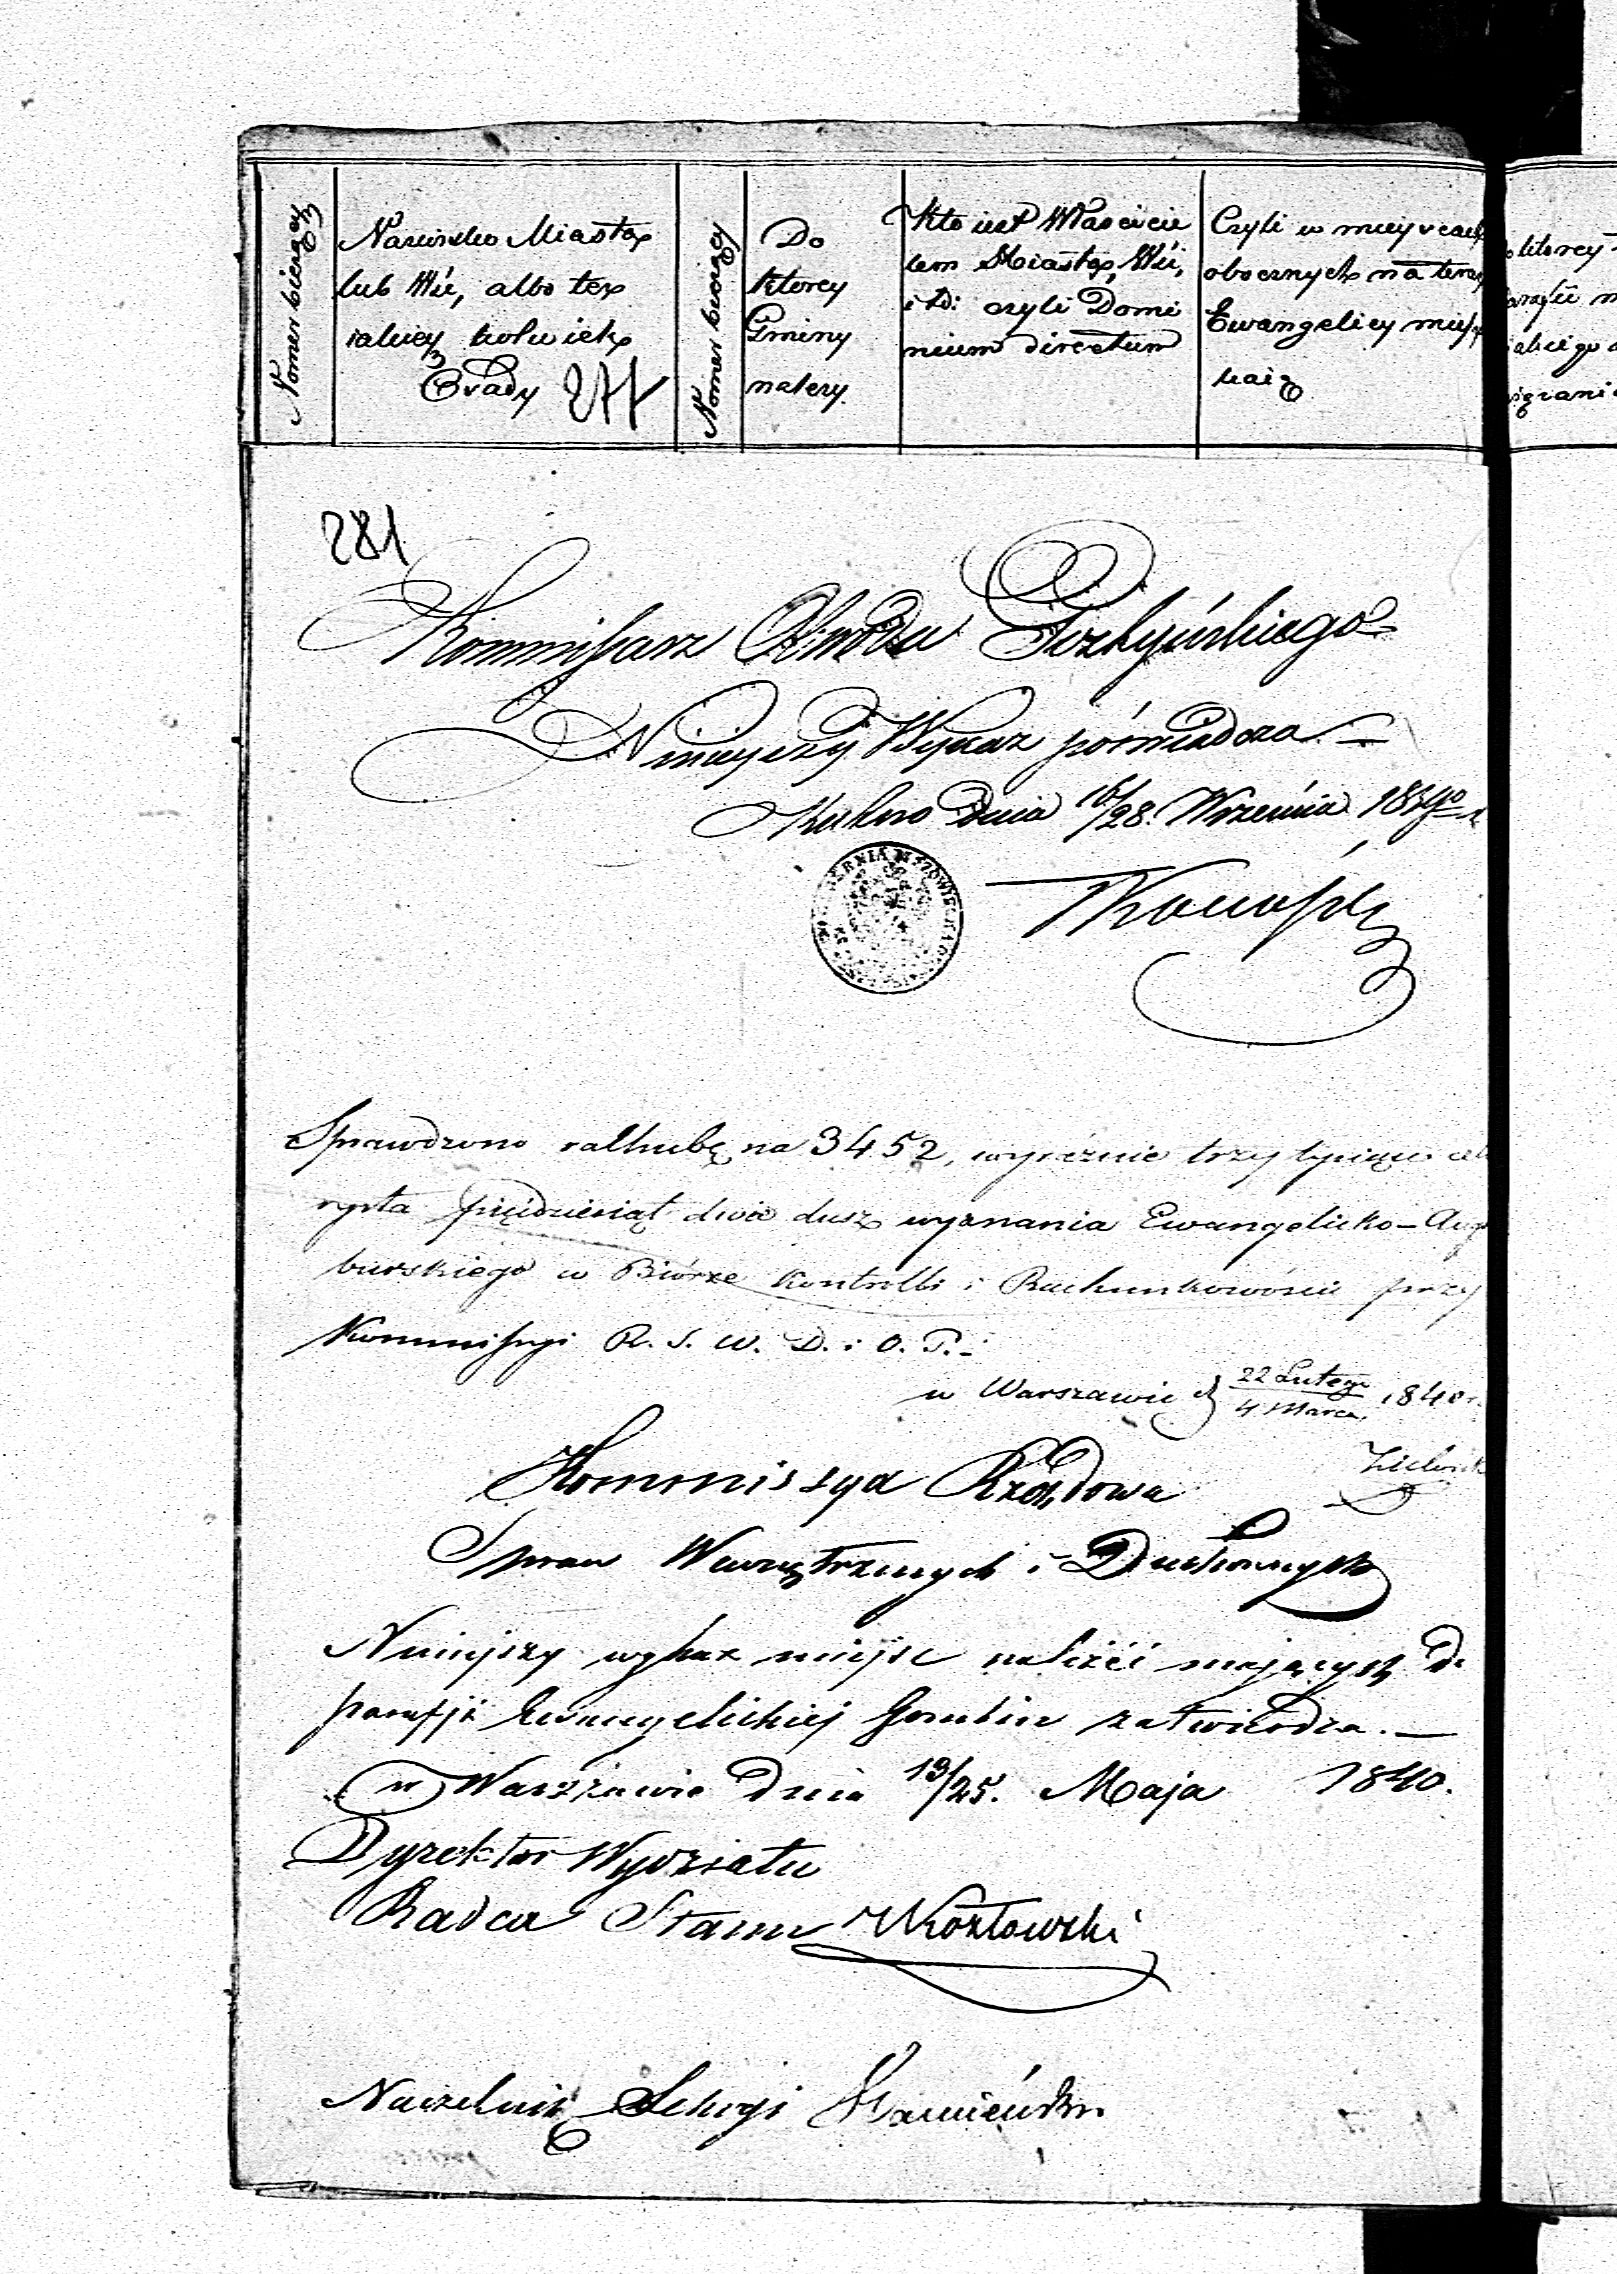 Nomer bieżący
Nazwisko Miasta
lub Wsi, albo też
iakiey kolwiek
Osady 277
Nomer bieżący
Do
którey
Gminy
należy.
Kto iest Właścicie
lem Miasta, Wsi,
i td: czyli Domi
nium directum
Czyli w mieyscach
obocznych na teraz
Ewangelicy miesz
kaią
281
Kommissarz Obwodu Gostyńskiego
Ninieyszy Wykaz poświadcza
Kutno Dnia 16/28. Września
GUBERNIA MAZOWIECKA
Sprawdzono na 3452, wyraźnie trzy tysiące czte
rysta pięćdziesiąt dwie dusz wyznania Ewangelicko-Augs
burskiego w Biórze Kontrolli i Rachunkowości przy
Kommissyi R. S. W. D. i O. P.
w Warszawie d 22 Lutego / 4 Marca 1840 r.
Kommissya Rządowa
Spraw Wewnętrznych i Duchownych
Niniejszy wykaz miejsc należeć mających do
parafji Ewangelickiej Gombin zatwierdza. —
w Warszawie dnia 13/25. Maja 1840.
Dyrektor Wydziału
Radca Stanu Kozłowski
Naczelnik Sekcyi Kamieński